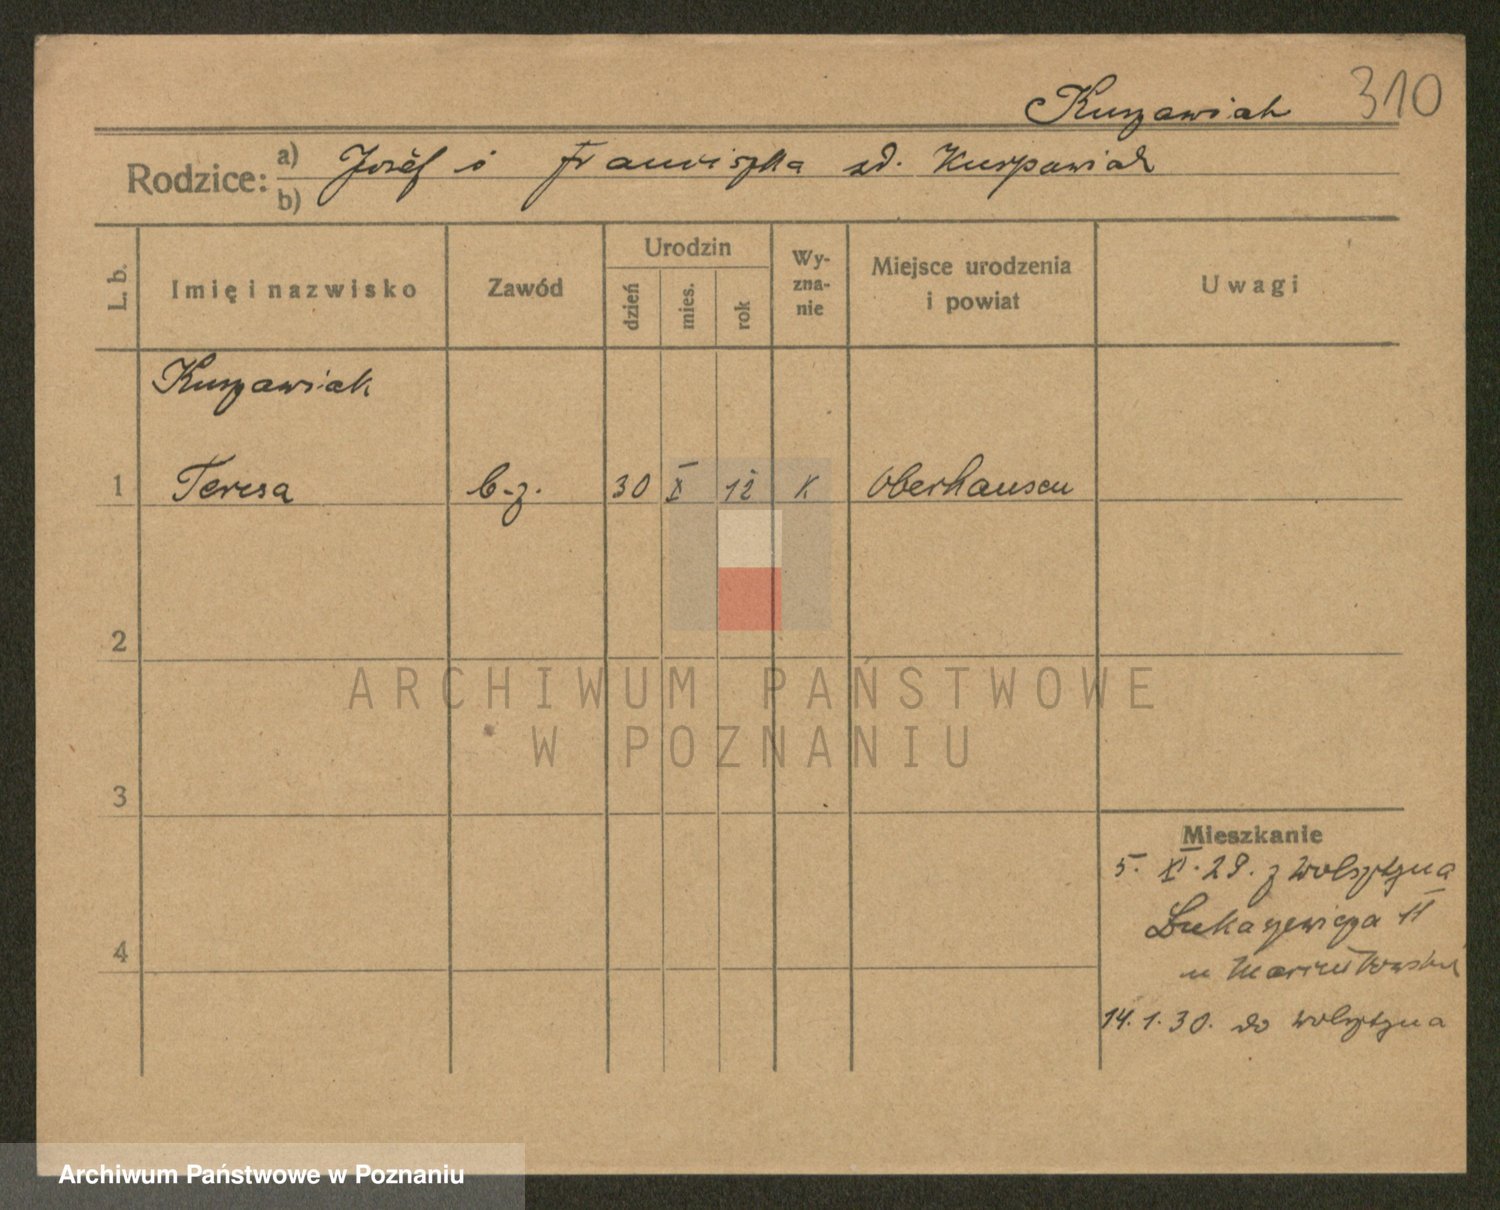 Kurzawiak 310
Rodzice: a) Józéf i Franciszka zd. Kurzawiak
b)
L. b. Imię i nazwisko Zawód Urodzin dzień mies. rok Wy-zna-nie Miejsce urodzenia i powiat Uwagi
Kurzawiak
1 Teresa b.z. 30 X 12 K Oberhausen
2
ARCHIWUM PAŃSTWOWE
W POZNANIU
3
Mieszkanie
5. XI. 29. z Wolsztyna
Łukaszewicza 11
u
4
14. 1. 30. do Wolsztyna
Archiwum Państwowe w Poznaniu